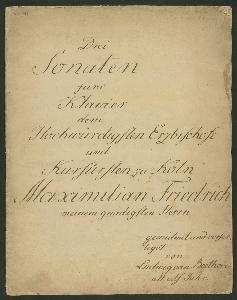 Drei
Sonaten
fürs
Klavier
dem
Hochwürdigsten Erzbischofe
und
Kurfürsten zu Köln
Maximilian Friedrich
meinem gnädigsten Herrn
gewidmet und verfer-
tiget
von
Ludwig van Beethoven
alt eilf Jahr